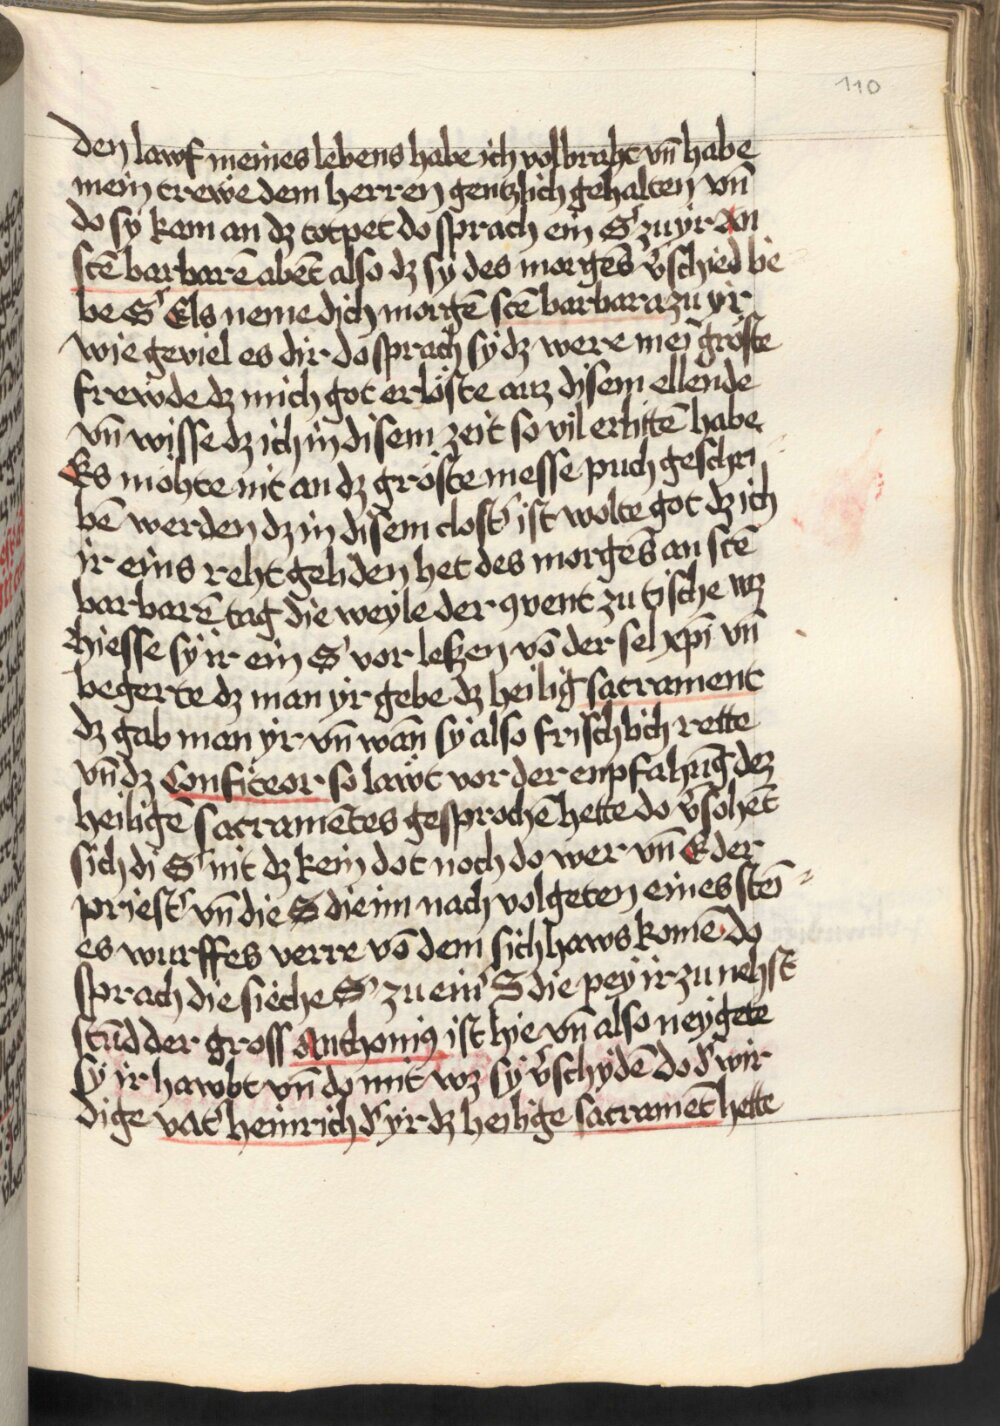 110
den lawf meines lebens habe ich volbraht vñ habe
mein trewe dem herren gentzlich gehalten vñ
do sy kam an dz totpet do sprach ein S' zu yr an
sctē barbarē abēt also dz sy des morgēs v̄schied lie
be S' Els neme dich morgē sctē barbara zu yr
wie geviel es dir do sprach sy dz were mei gröste
frewde dz mich got erlöste auz disem ellende
vñ wisse dz ich in disem zeit so vil erlittē habe
Es möhte nit an dz gröste messe puch geschri
bē werden dz in disem clost' ist wolte got dz ich
ir eins reht geliden het des morgēs an sctē
barbarē tag die weyle der 9vent zu tische wz
hiesse sy ir ein S' vor leßen vō der sel xp̄i vñ
begerte dz man yr gebe dz heilig sacrament
dz gab man yr vñ wan̄ sy also frischlich rette
vñ dz Confiteor so lawt vor der enpfahūg dez
heiligē sacramētes gesprochē hette do v̄sohēt
sich di S' nit dz kein dot noch do wer vñ E der
priest' vñ die S die im nach volgeten eines stei
es wurffes verre vō dem sichhaws komē do
sprach die sieche S' zu ein' S die pey ir zu nehst
stūd der gross Anthoni9 ist hie vñ also neygete
sy ir hawbt vñ do mit wz sy v̄schydē do d' wir
dige vat' heinrich d' yr dz heilige sacramēt hette